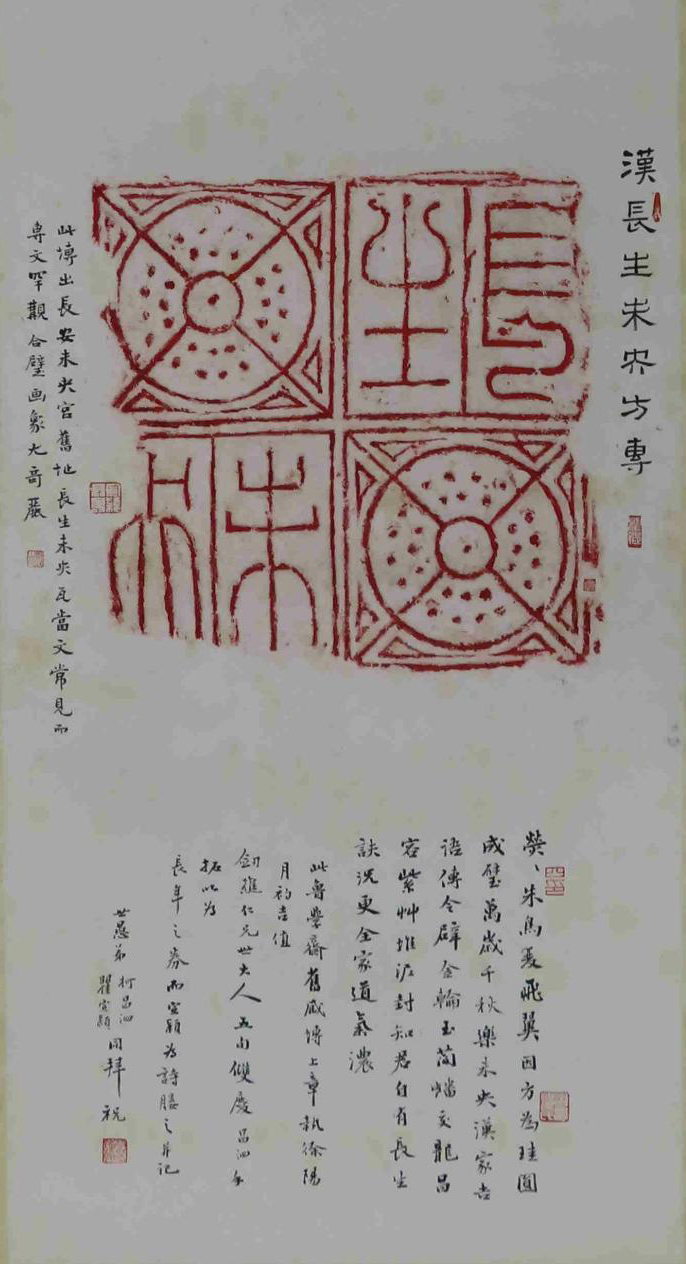 漢長生未央方專
長生
未央
此塼出長安未央宮舊地長生未央瓦當文常見而
專文罕覯合璧画象尤奇麗
熒〻朱鳥夏飛翼因方為珪圓
成璧萬歲千秋樂未央漢家吉
語傳令辟金輪玉蕳蟠交龍昌
容紫艸堆泥封知君自有長生
訣況更全家道氣濃
此魯學齋舊藏塼上章執徐陽
月初吉值
仁兄世大人五旬雙慶昌泗手
拓以為
長年之券而宣穎為詩媵之并記
世愚弟柯昌泗瞿宣穎同拜祝